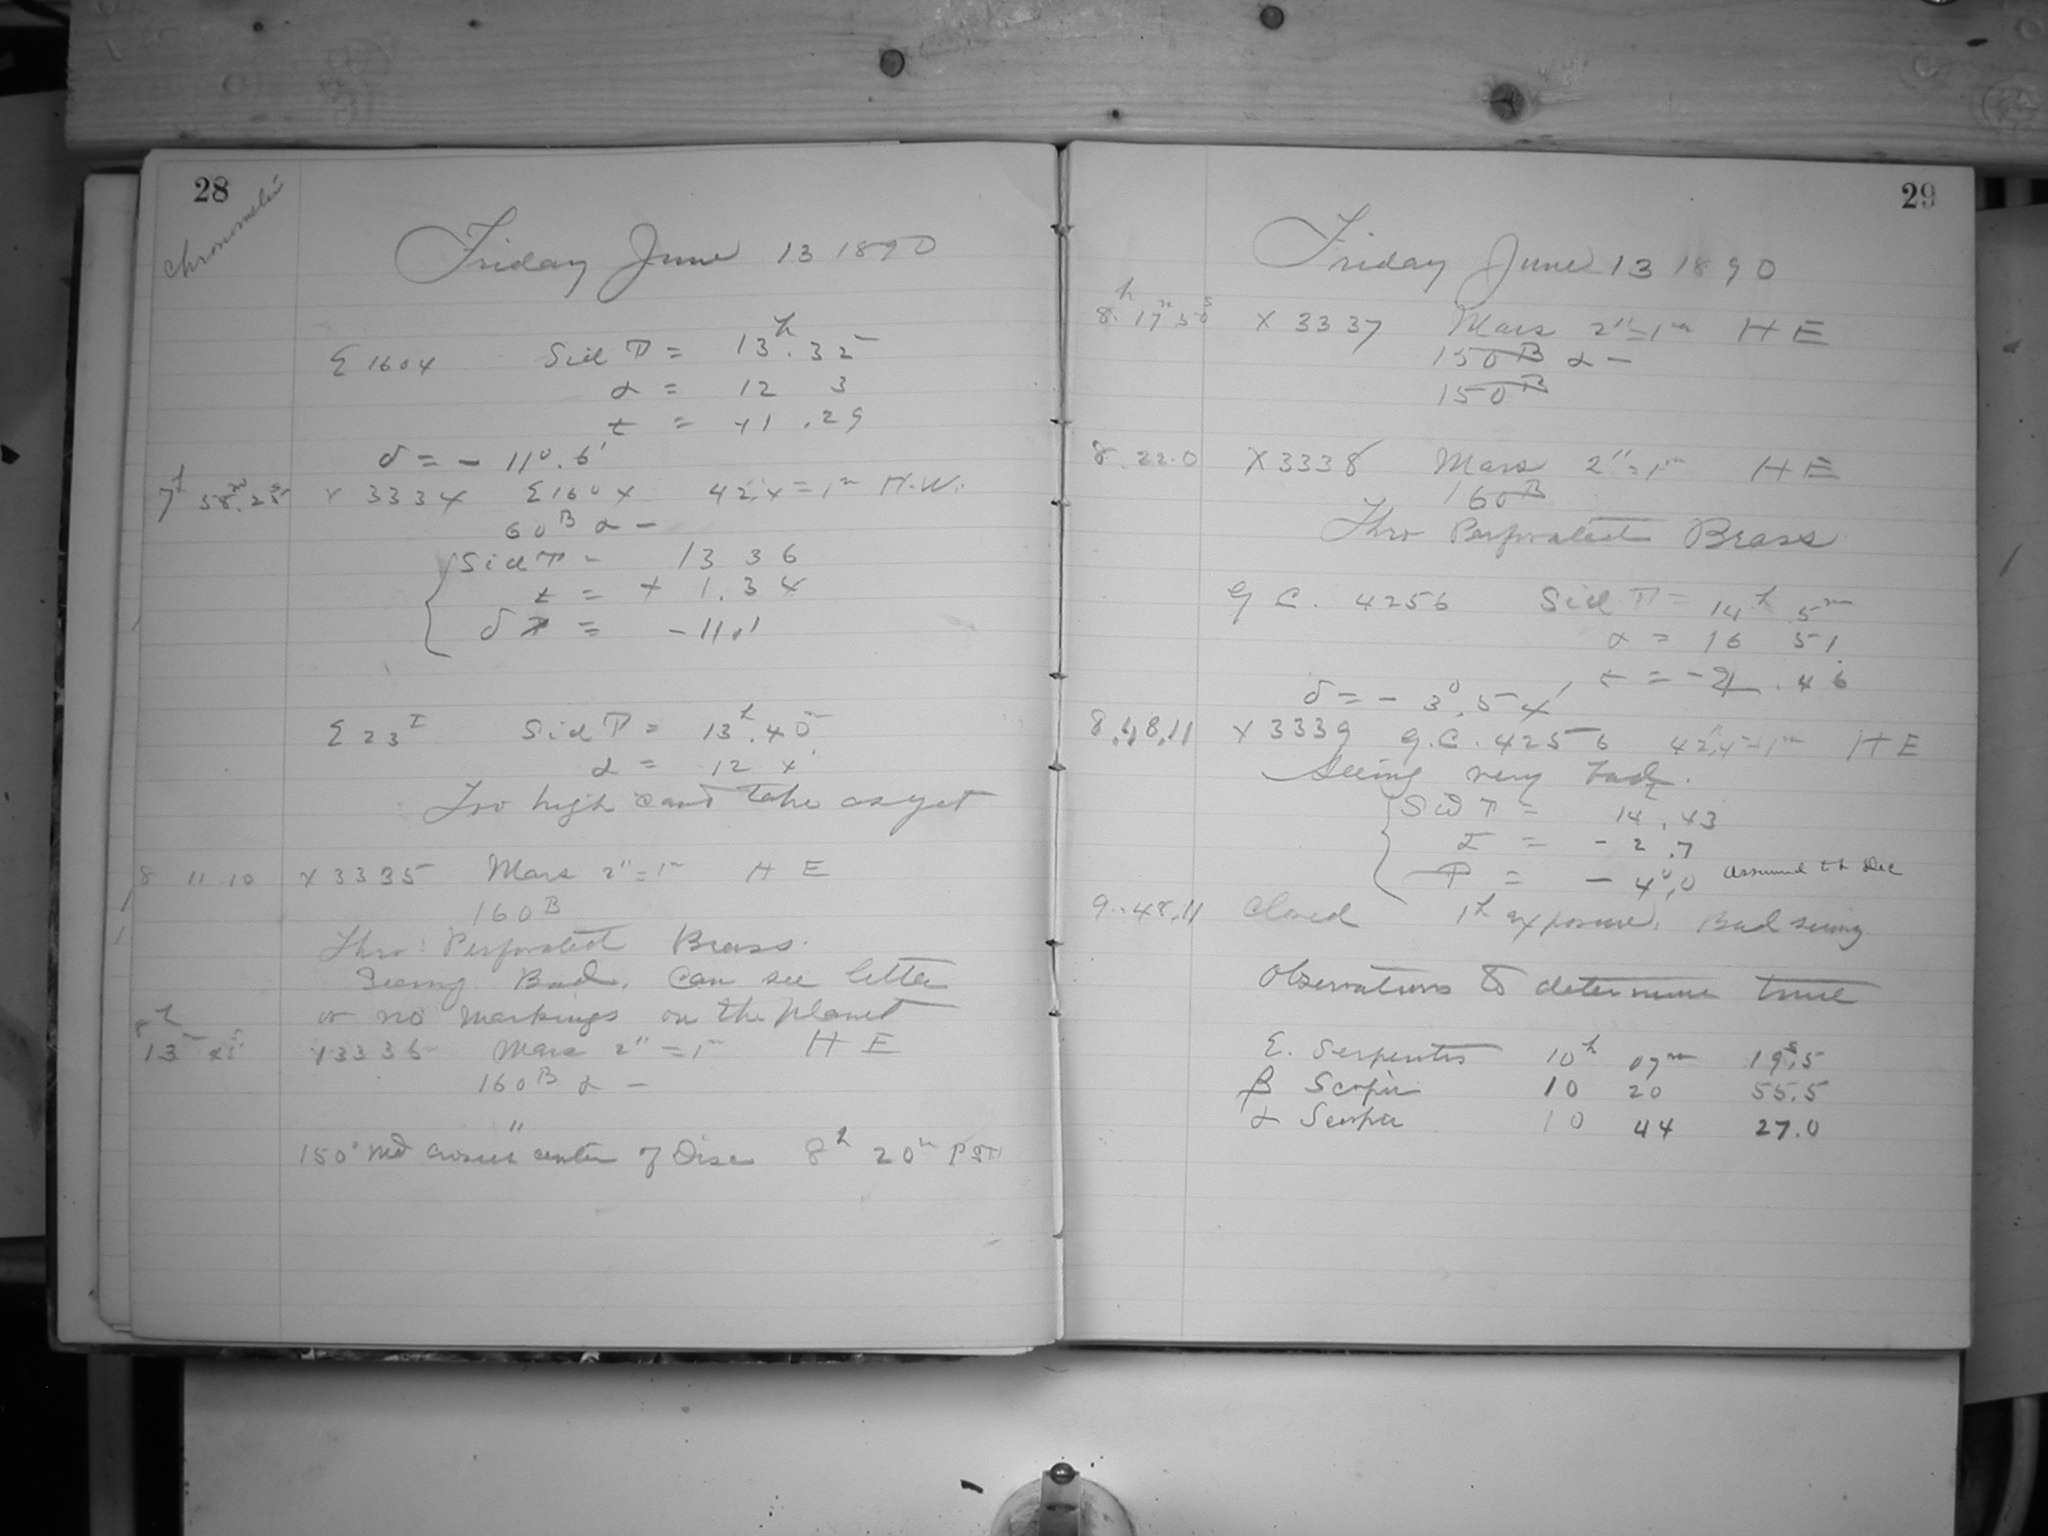 28
chronometer
Friday June 13 1890
Σ 1604 Sid T = 13h.32
α = 12 3
t = +1.29
δ = - 11°.6'
7h 58m.25s × 3334 Σ1604 42".4=1m H.W.
60B α -
Sid T = 13 36
t = + 1.34
δ = -11.1
Σ 23 I Sid T = 13h.40m
α = 12 4
Too high cant take as yet
8 11 10 × 3335 Mars 2"=1m H E
160B
Thro: Perforated Brass.
Seeing Bad. Can see little
or no markings on the planet
8h 13m 45s ×3336 Mars 2"=1m H E
160B α -
150° md crosses center of Disc 8h 20m PST
29
Friday June 13 1890
8h 17m 50s × 3337 Mars 2"=1m H E
150B α -
150B
8.22.0 ×3338 Mars 2"=1m H E
160B
Thro Perforated Brass
G C. 4256 Sid T = 14h 5m
α = 16 51
t = -2.46
δ = - 3°.54'
8.48.11 ×3339 G.C. 4256 42".4=1m H E
Seeing very bad.
Sid T = 14.43
t = - 2.7
= - 4°.0 assumed th Dec
9.48.11 Closed 1h exposure. Bad seeing
Observations to determine time
E. Serpentis 10h 07m 19s.5
β Scorpii 10 20 55.5
α Scorpii 10 44 27.0